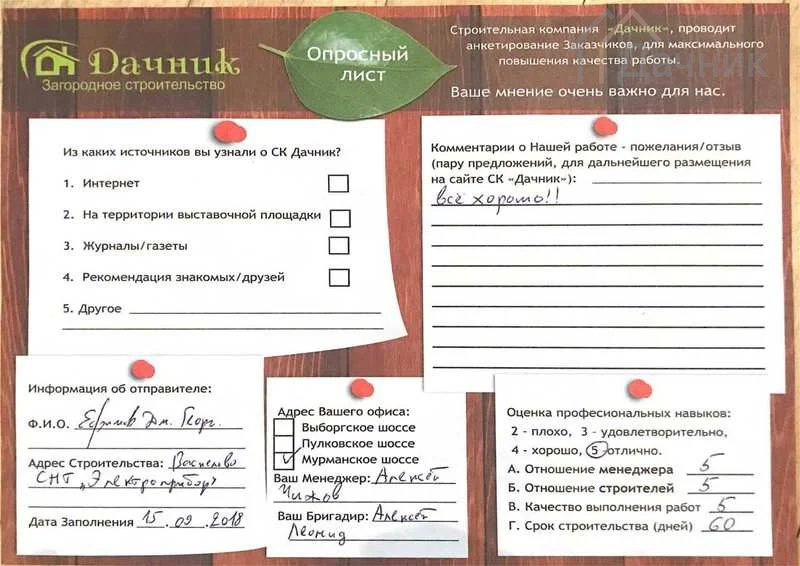 Дачник
Загородное строительство
Опросный
лист
Строительная компания «Дачник», проводит
анкетирование Заказчиков, для максимального
повышения качества работы.
Ваше мнение очень важно для нас.
Дачник
Из каких источников вы узнали о СК Дачник?
1. Интернет
2. На территории выставочной площадки
3. Журналы/газеты
4. Рекомендация знакомых/друзей
5. Другое
Комментарии о Нашей работе - пожелания/отзыв
(пару предложений, для дальнейшего размещения
на сайте СК «Дачник»):
всё хорошо!!
Информация об отправителе:
Ф.И.О. Ефимов Дм. Георг.
Адрес Строительства:
СНТ „Электроприбор"
Дата Заполнения 15.09.2018
Адрес Вашего офиса:
Выборгское шоссе
Пулковское шоссе
Мурманское шоссе
Ваш Менеджер: Алексей
Чижов
Ваш Бригадир: Алексей
Леонид
Оценка професиональных навыков:
2 - плохо, 3 - удовлетворительно,
4 - хорошо, 5 отлично.
А. Отношение менеджера 5
Б. Отношение строителей 5
В. Качество выполнения работ 5
Г. Срок строительства (дней) 60